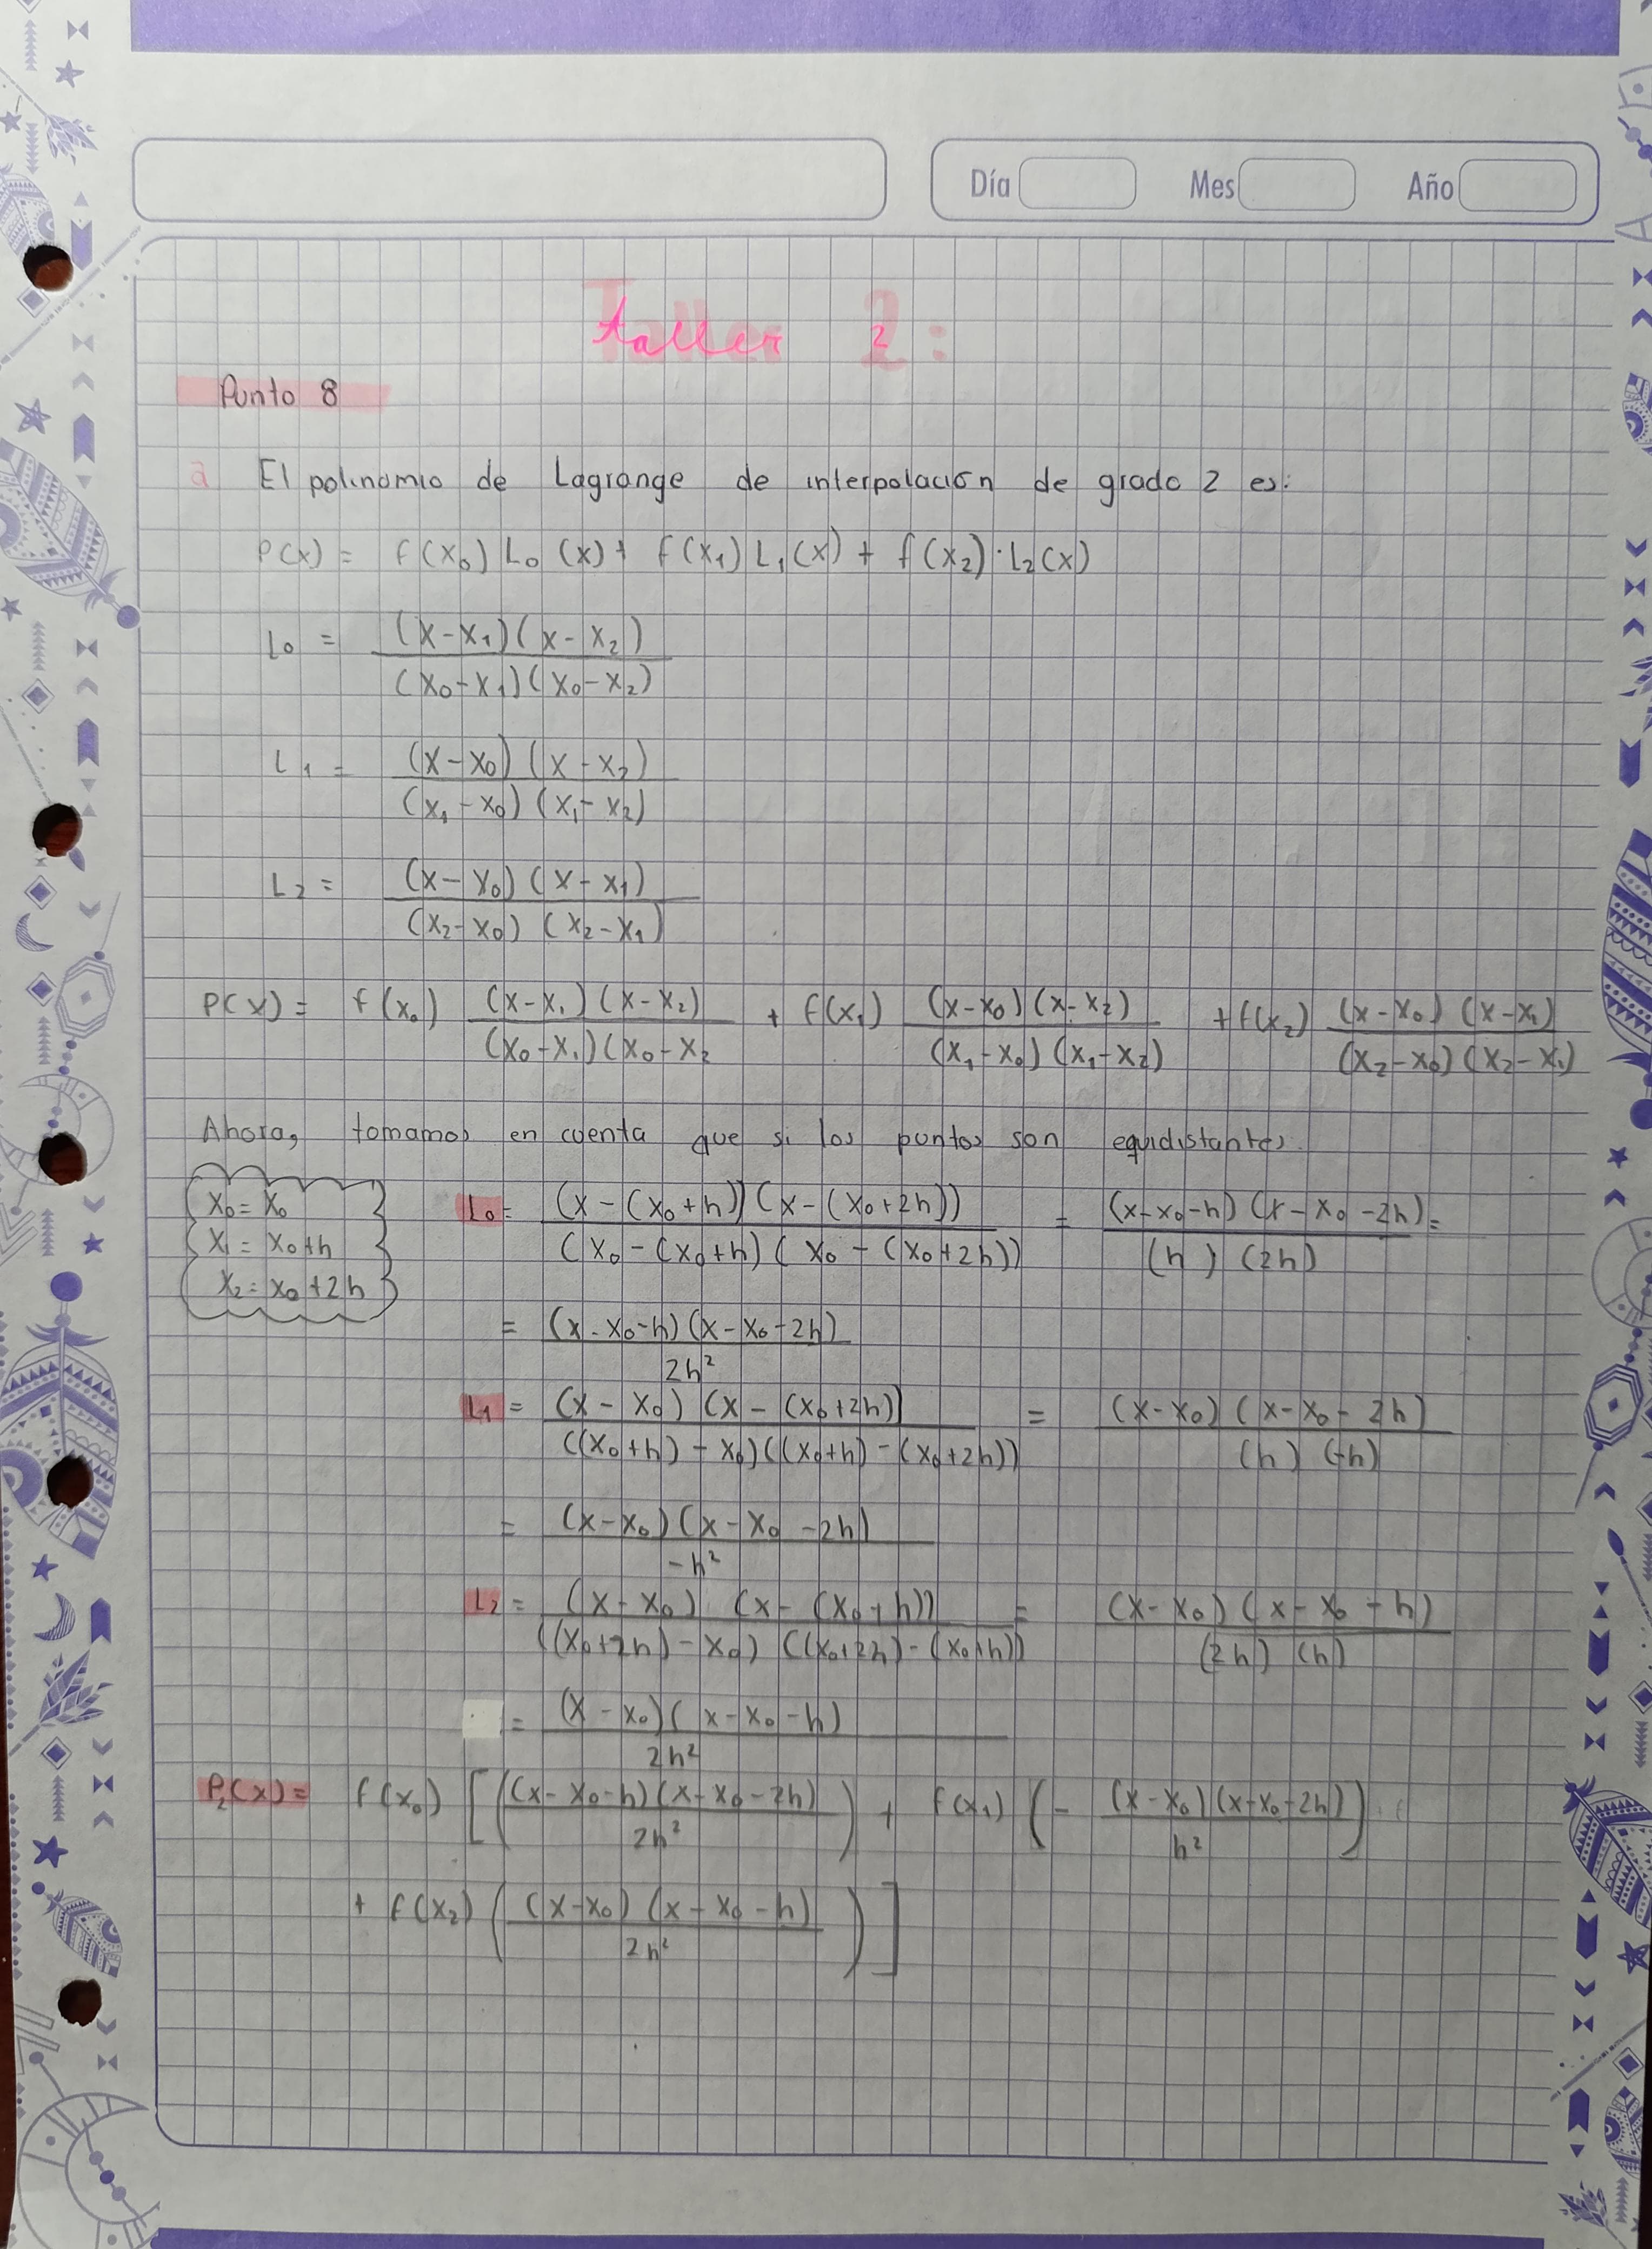 Día Mes Año
Taller 2:
Punto 8
a El polinomio de Lagrange de interpolación de grado 2 es:
P(x) = f(x₀) L₀ (x) + f(x₁) L₁(x) + f(x₂) · L₂(x)
L₀ = (x-x₁)(x-x₂) / (x₀-x₁)(x₀-x₂)
L₁ = (x-x₀) (x-x₂) / (x₁-x₀) (x₁-x₂)
L₂ = (x-x₀) (x-x₁) / (x₂-x₀) (x₂-x₁)
P(x) = f(x₀) (x-x₁)(x-x₂) / (x₀-x₁)(x₀-x₂ + f(x₁) (x-x₀)(x-x₂) / (x₁-x₀)(x₁-x₂) + f(x₂) (x-x₀) (x-x₁) / (x₂-x₀)(x₂-x₁)
Ahora, tomamos en cuenta que si los puntos son equidistantes.
x₀ = x₀
x₁ = x₀+h
x₂ = x₀+2h
L₀ = (x-(x₀+h))(x-(x₀+2h)) / (x₀-(x₀+h)(x₀-(x₀+2h)) = (x-x₀-h)(x-x₀-2h) / (h) (2h) =
= (x-x₀-h)(x-x₀-2h) / 2h²
L₁ = (x-x₀) (x-(x₀+2h)) / ((x₀+h)-x₀)((x₀+h)-(x₀+2h)) = (x-x₀) (x-x₀-2h) / (h) (-h)
= (x-x₀)(x-x₀-2h) / -h²
L₂ = (x-x₀) (x-(x₀+h)) / ((x₀+2h)-x₀) ((x₀+2h)-(x₀+h)) = (x-x₀)(x-x₀-h) / (2h) (h)
= (x-x₀)(x-x₀-h) / 2h²
P₂(x) = f(x₀) [((x-x₀-h)(x-x₀-2h) / 2h²) + f(x₁) (- (x-x₀)(x-x₀-2h) / h²)
+ f(x₂) ((x-x₀) (x-x₀-h) / 2h²)]